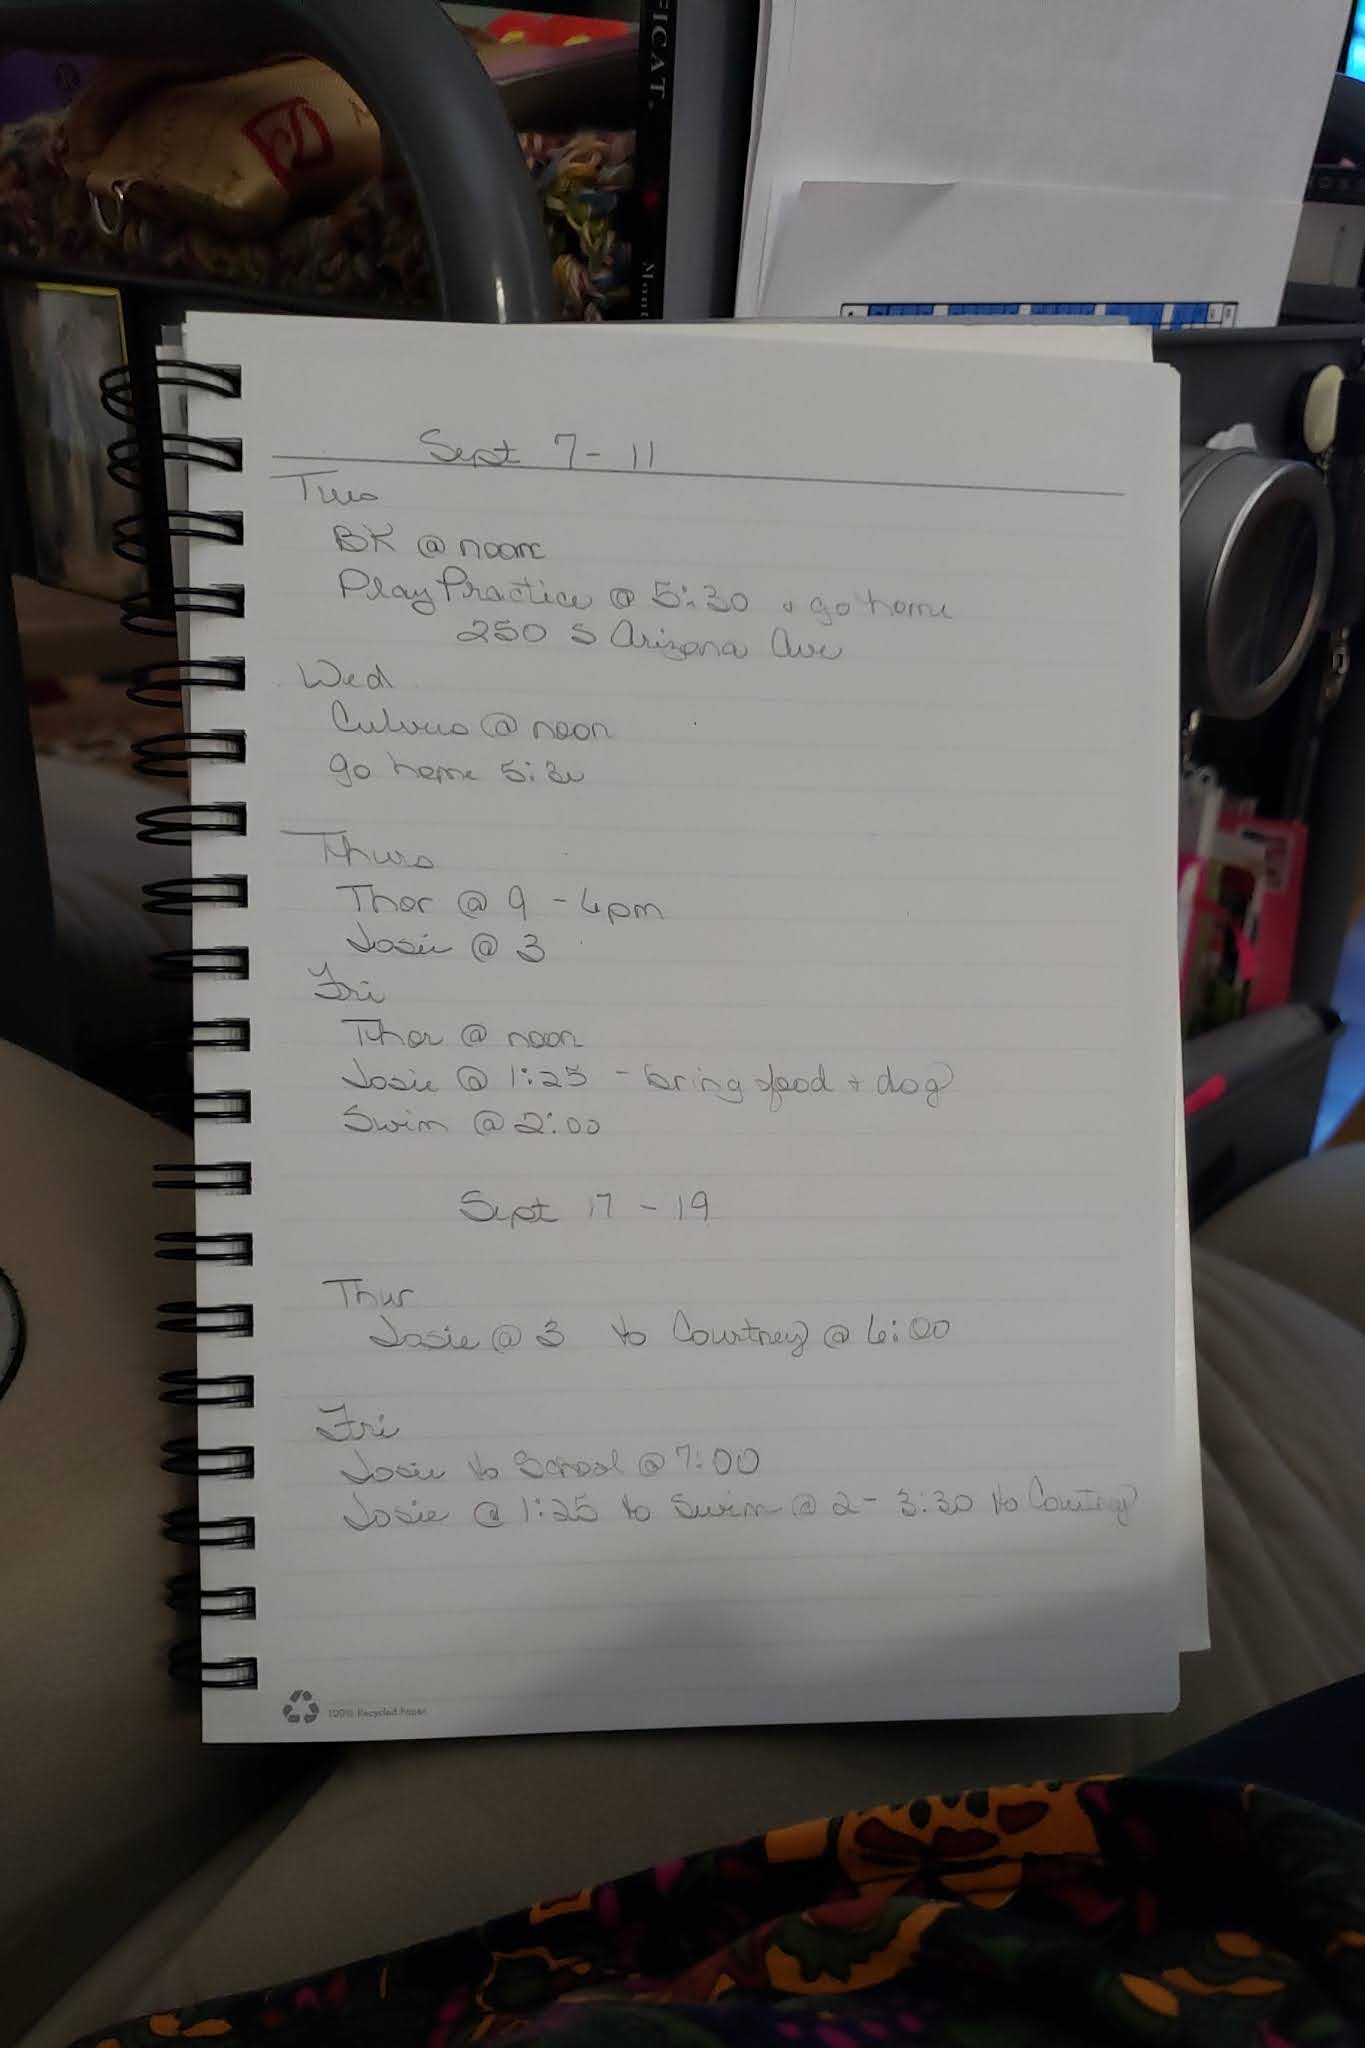 FICAT.
Sept 7 - 11
Tues
BK @ noon
Play Practice @ 5:30 + go home
250 S Arizona Ave
Wed
Culvers @ noon
go home 5:30
Thurs
Thor @ 9 - 4pm
Josie @ 3
Fri
Thor @ noon
Josie @ 1:25 - bring food + dog
Swim @ 2:00
Sept 17 - 19
Thur
Josie @ 3 to Courtney @ 6:00
Fri
Josie to School @ 7:00
Josie @ 1:25 to Swim @ 2 - 3:30 to Courtney
100% Recycled Paper